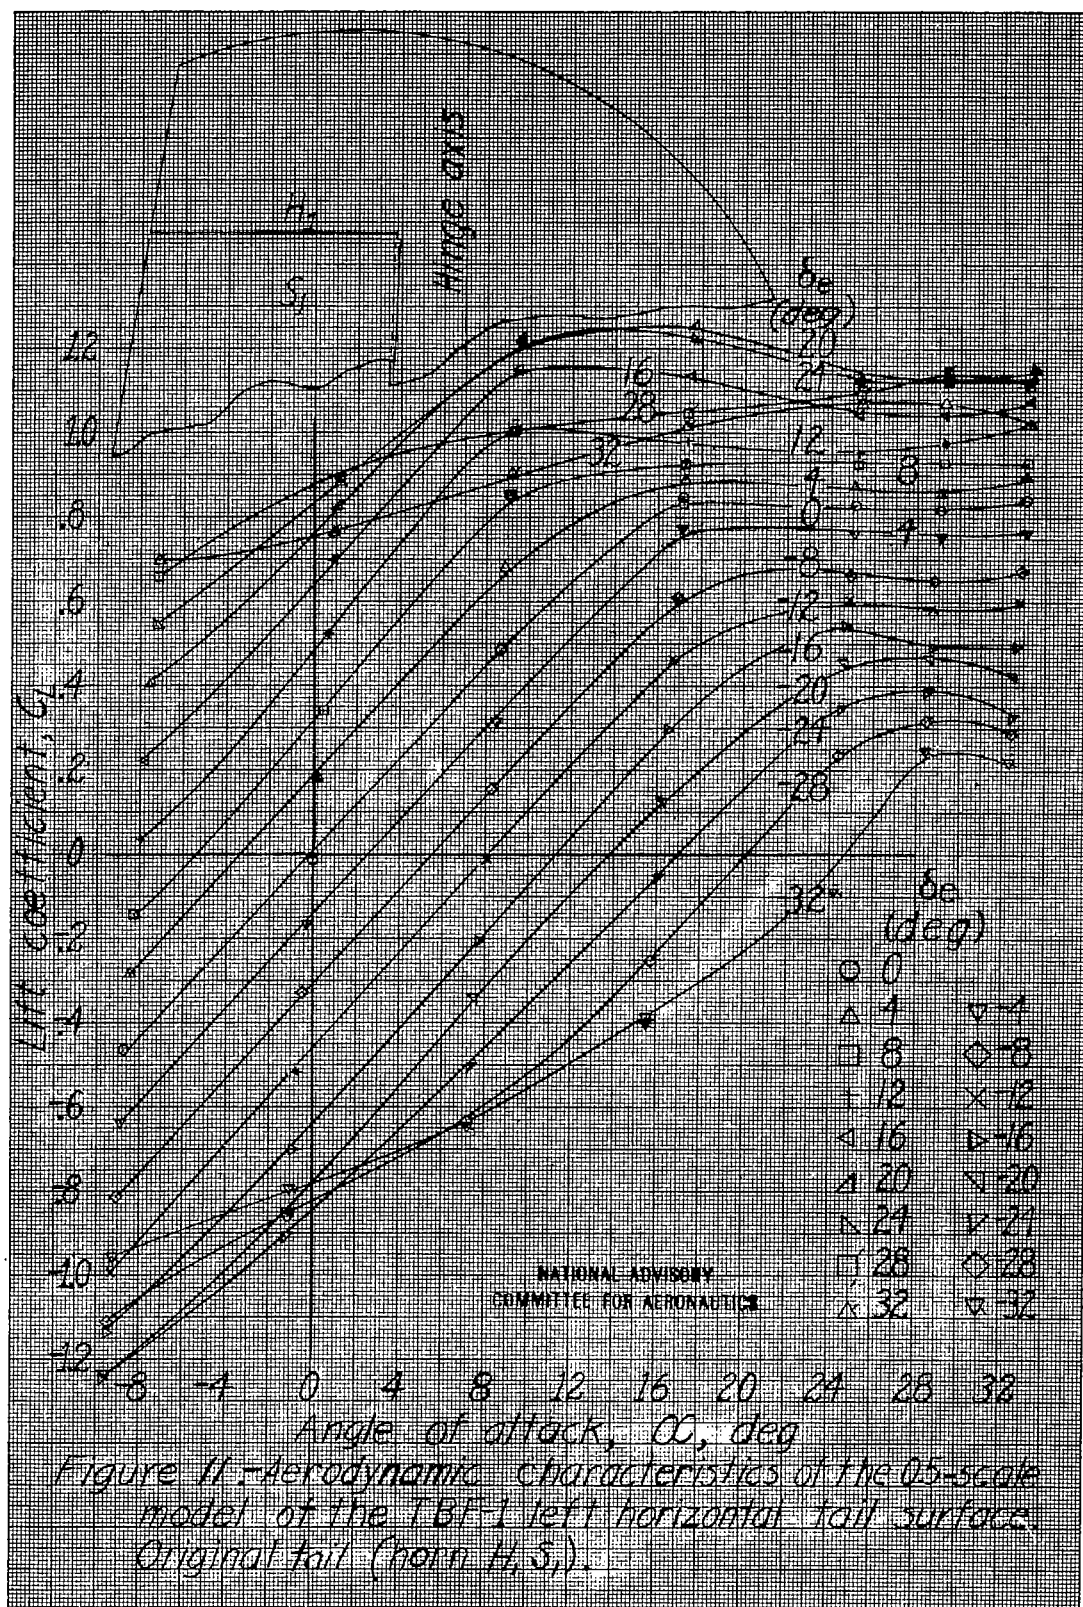 H,
S,
Hinge axis
δe
(deg)
20
24
16
28
12
32
8
4
0
-4
-8
-12
-16
-20
-24
-28
-32
1.2
1.0
.8
.6
.4
.2
0
-.2
-.4
-.6
-.8
-1.0
-1.2
Lift coefficient, CL
δe
(deg)
0
4 -4
8 -8
12 -12
16 -16
20 -20
24 -24
28 -28
32 -32
NATIONAL ADVISORY
COMMITTEE FOR AERONAUTICS
-8 -4 0 4 8 12 16 20 24 28 32
Angle of attack, α, deg
Figure 11.-Aerodynamic characteristics of the 0.5-scale
model of the TBF-1 left horizontal tail surface.
Original tail (horn H, S,).